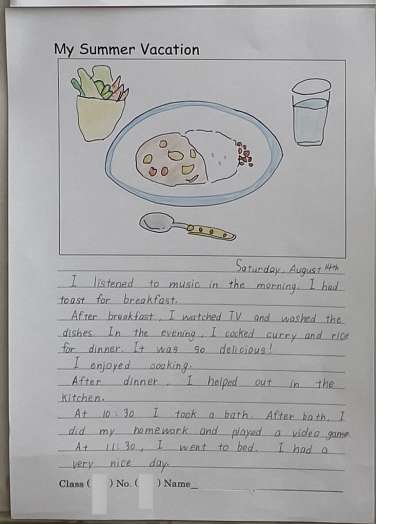 My Summer Vacation
Saturday, August 14th
I listened to music in the morning. I had
toast for breakfast.
After breakfast, I watched TV and washed the
dishes. In the evening, I cooked curry and rice
for dinner. It was so delicious!
I enjoyed cooking.
After dinner, I helped out in the
kitchen.
At 10:30 I took a bath. After bath, I
did my homework and played a video game.
At 11:30, I went to bed. I had a
very nice day.
Class ( ) No. ( ) Name